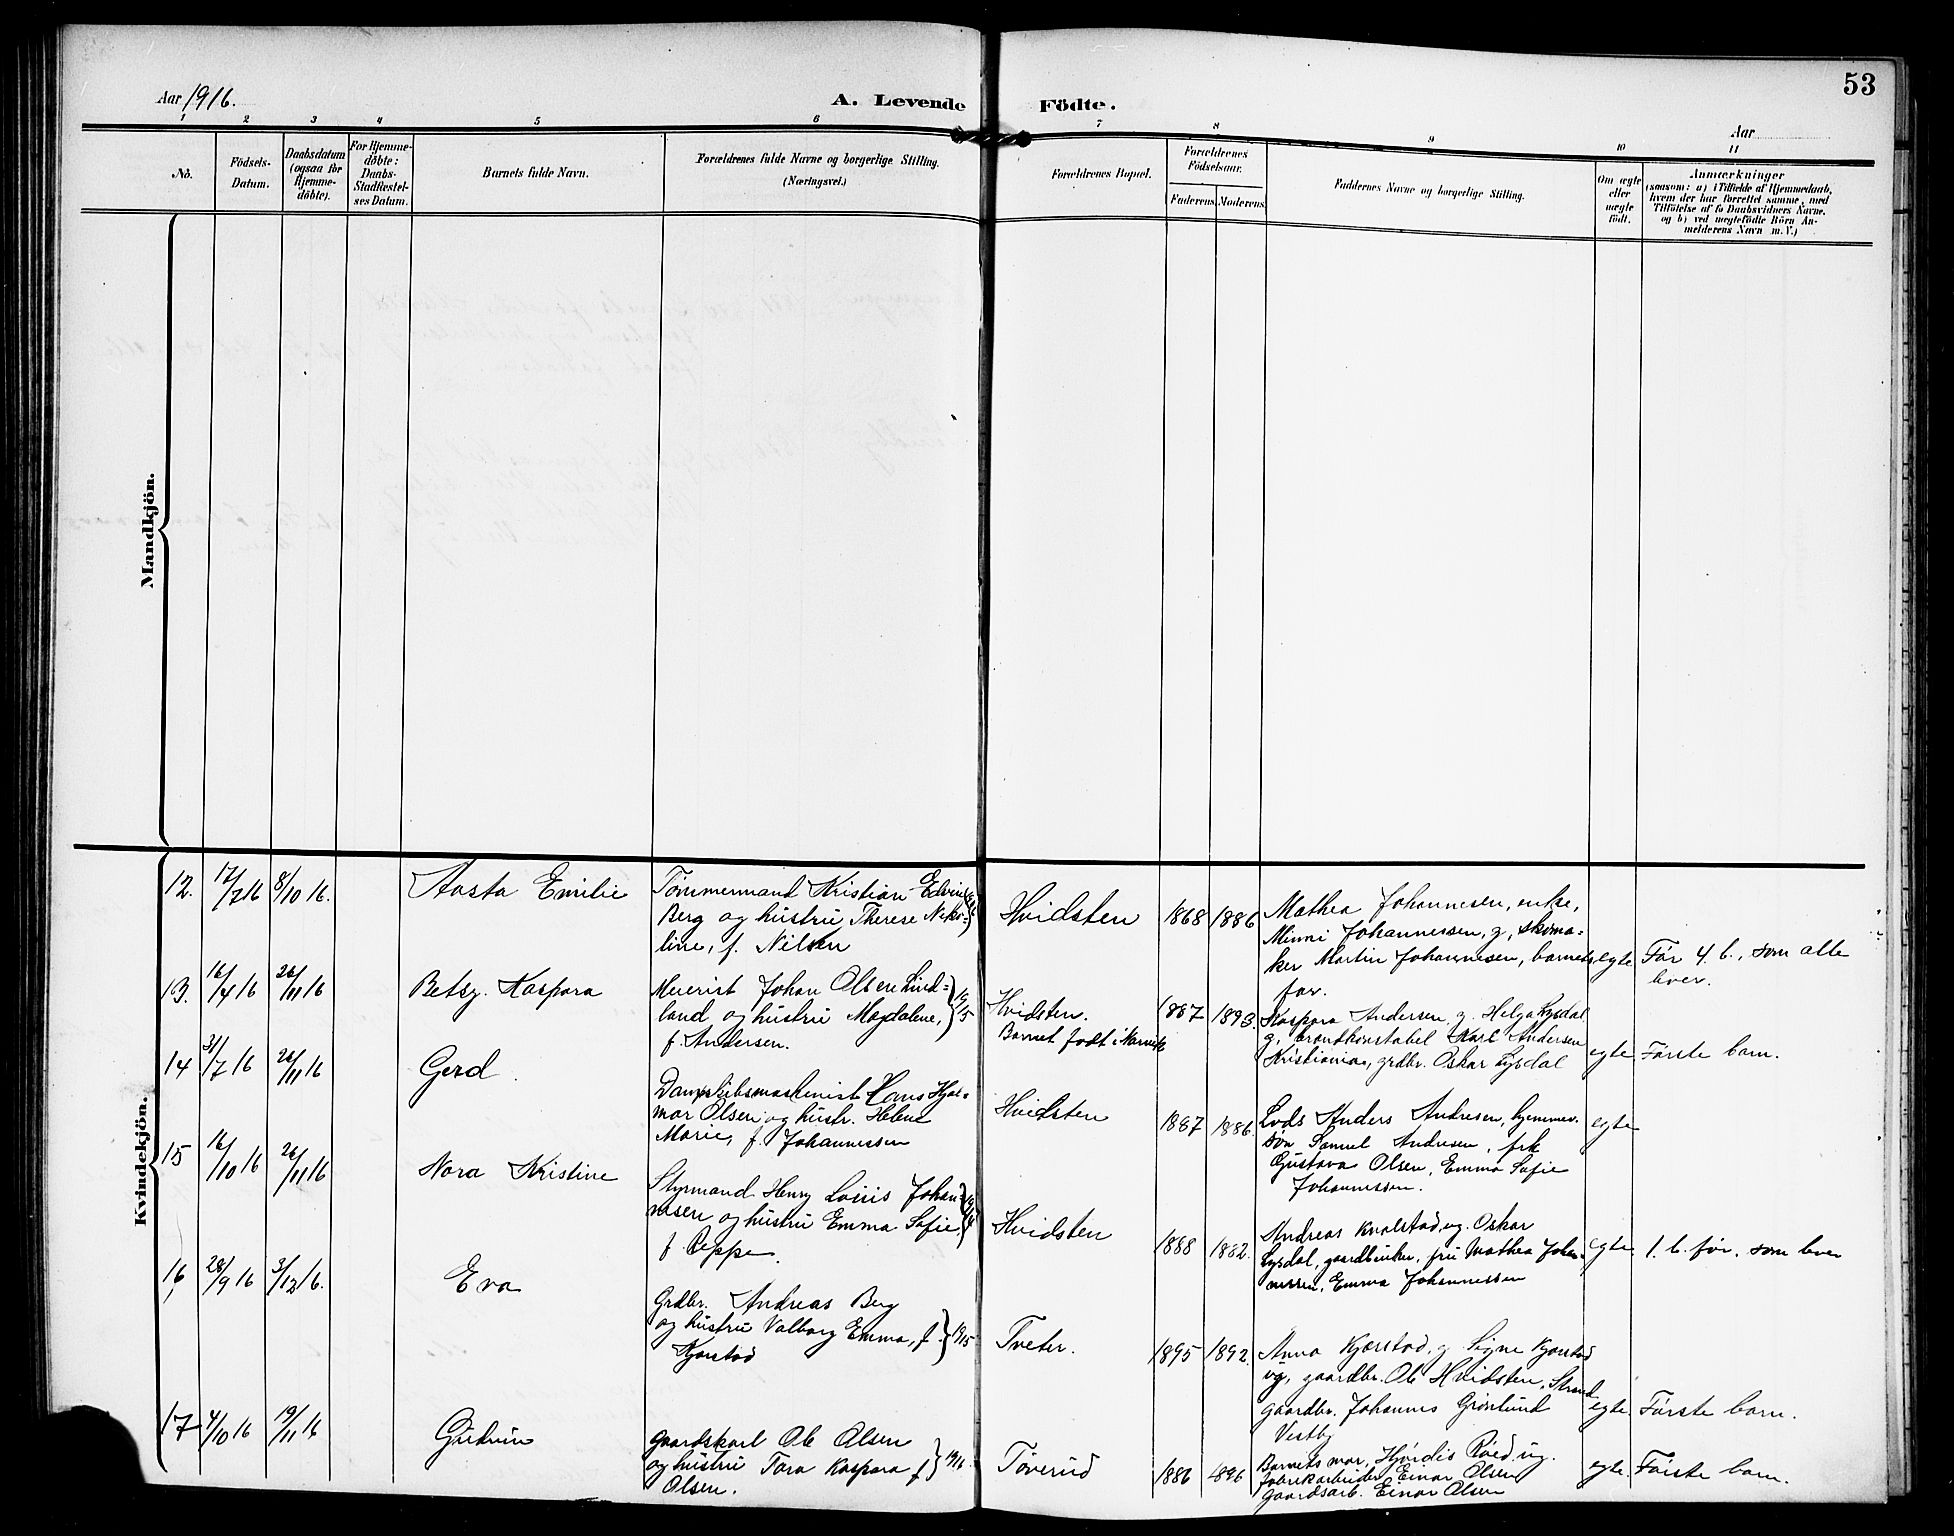 53
Aar 1916.
A. Levende Födte.
Aar
1 2 3 4 5 6 7 8 9 10 11
No.
Födsels-
Datum.
Daabsdatum
(ogsaa for
Hjemme-
döbte).
For Hjemme-
döbte:
Daabs-
Stadfæstel-
ses Datum.
Barnets fulde Navn.
Forældrenes fulde Navne og borgerlige Stilling.
(Næringsvei.)
Forældrenes Bopæl.
Forældrenes
Födselsaar.
Faderens. Moderens.
Faddernes Navne og borgerlige Stilling.
Om ægte
eller
uægte
födt.
Anmærkninger
(saasom: a) i Tilfælde af Hjemmedaab,
hvem der har forrettet samme, med
Tilföielse af to Daabsvidners Navne,
og b) ved uægtefödte Börn An-
melderens Navn m. V.)
Mandkjön.
Kvindekjön.
12. 17/7 16 8/10 16. Aasta Emilie
Tømmermand Kristian Edvin
Berg og hustru Therese
line, f. Nilsen
Hvidsten 1868 1886
Mathea Johannesen, enke,
Minni Johannessen, g, skoma-
ker Martin Johannesen, barnets
far.
egte Før 4 b., som alle
lever.
13. 16/4 16 26/11 16 Betsy Kaspara
Meierist Johan Olsen Lind-
land og hustru Magdalene,
f. Andersen.
1915
Hvidsten.
Barnet født i Narvik
1887 1893.
Kaspara Andersen, g. Helga Lysdal
g, brandkonstabel Karl Andersen
Kristiania, grdbr. Oskar Lysdal
egte Første barn.
14 31/7 16 26/11 16 Gerd
Dampskibsmaskinist Hans Hjal-
mar Olsen og hustr. Helene
Marie, f. Johannessen
Hvidsten 1887 1886.
Lods Anders Andresen, hjemmev.
søn Samuel Andresen, frk
Gustava Olsen, Emma Sofie
Johannessen.
egte
15 16/10 16 26/11 16 Nora Kristine
Styrmand Henry Louis Johan-
nesen og hustru Emma Sofie
f. Reppe.
Hvidsten 1888 1882.
Andreas Kvalstad, ug. Oskar
Lysdal, gaardbruker, fru Mathea Johan-
nessen, Emma Johannessen
egte 1. b. før, som lever
16, 28/9 16 3/12 16. Eva
Grdbr. Andreas Berg
og hustru Valborg Emma, f.
Kjærstad
1915
Tveter. 1895 1892.
Anna Kjærstad, g Signe Kjærstad
ug, gaardbr. Ole Hvidsten, Strand
gaardbr. Johannes Grønlund
Vestby
egte. Første barn.
17 4/10 16 19/11 16 Gudrun
Gaardskarl Ole Olsen
og hustru Tora Kaspara f
Olsen.
1916.
Tøverud 1886 1896
Barnets mor, Hjørdis Røed, ug.
fabrikarbeider Einar Olsen
gaardsarb. Einar Olsen
egte. Første barn.